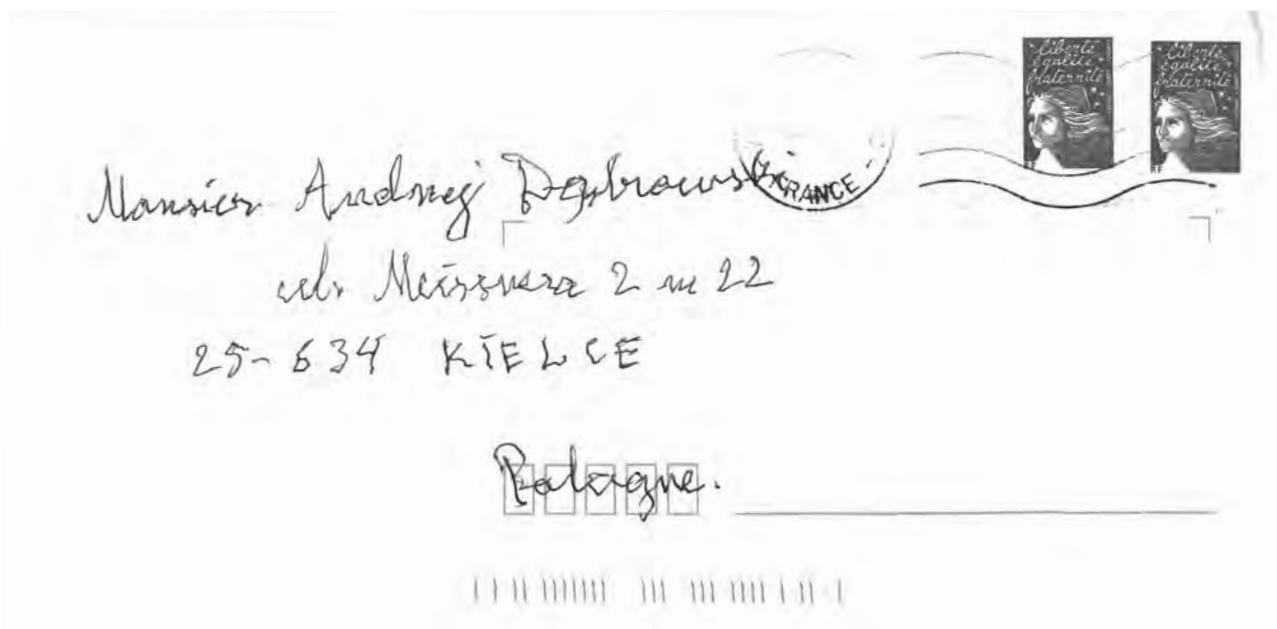 liberté
égalité
fraternité
RF
liberté
égalité
fraternité
RF
FRANCE
Monsieur Andrzej Dąbrowski
ul. Meissnera 2 m 22
25-634 KIELCE
Pologne.